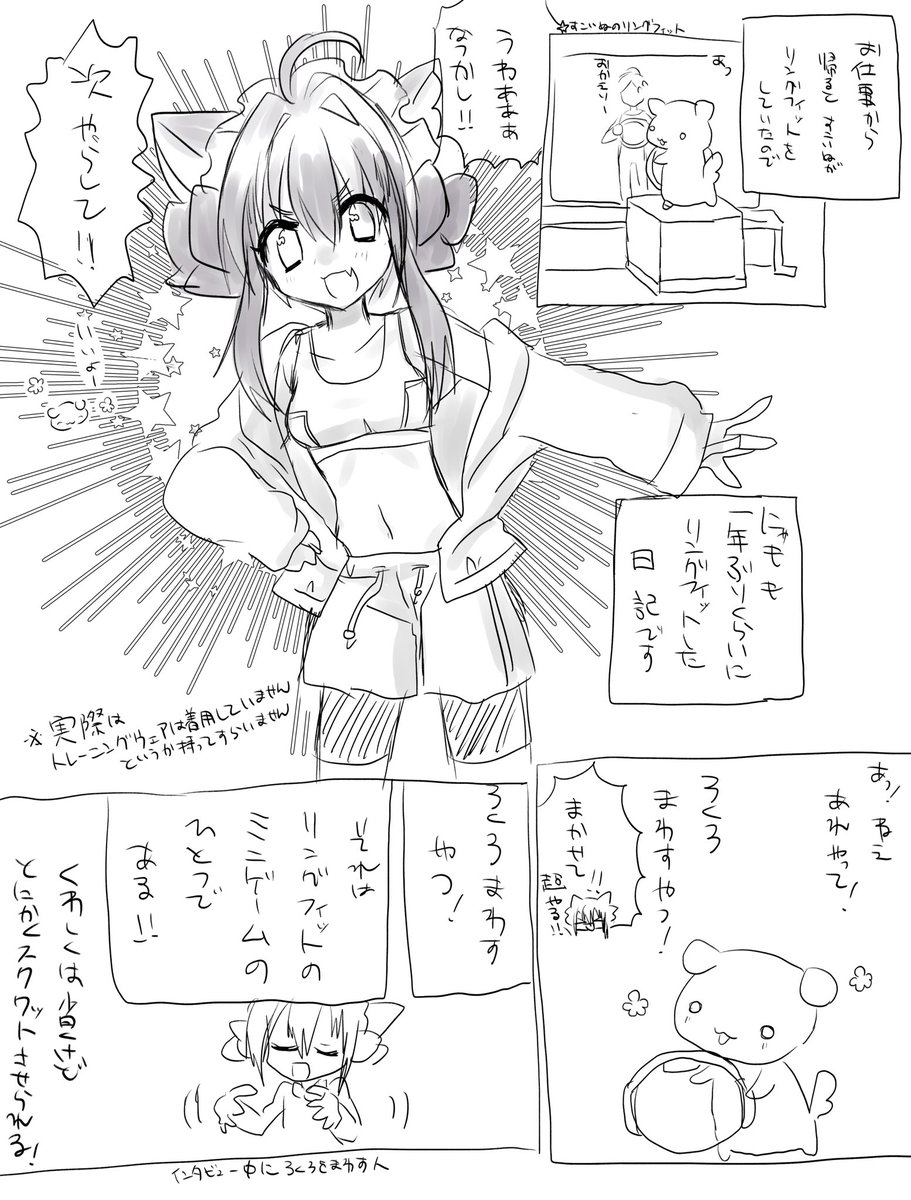 お仕事から
帰ると すこいぬが
リングフィットを
していたので
☆すこいぬのリングフィット
あっ
おかえりー
うわあぁぁ
なつかし!!
次 やらして!!
いいよー
にゃもも
一年ぶりくらいに
リングフィットした
日記です
※実際は
トレーニングウェアは着用していません
というか持ってすらいません
あっ!ねえ
あれやって!
ろくろ
まわすやつ!
まかせて
超やる!!
ろくろまわす
やつ!
それは
リングフィットの
ミニゲームの
ひとつで
ある!!
くわしくは省くけど
とにかくスクワットさせられる!
インタビュー中にろくろをまわす人